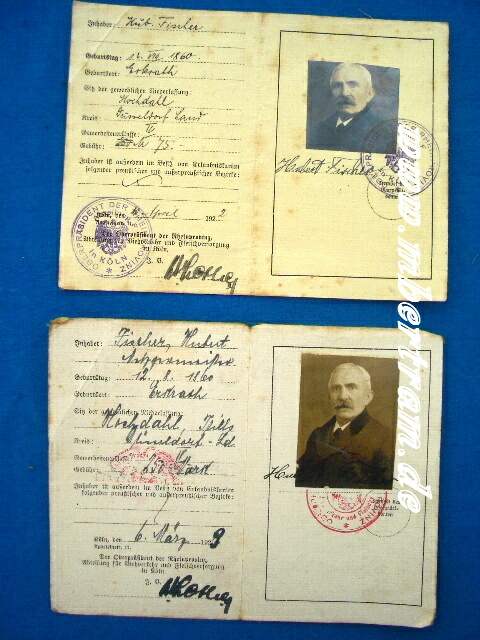 Inhaber: Hub. Fischer
Geburtstag: 12. VIII. 1860
Geburtsort: Erkrath
Sitz der gewerblichen Niederlassung:
Hochdahl
Kreis: Düsseldorf Land
Gewerbesteuerklasse: IV
Gebühr: 75.
Inhaber ist außerdem im Besitz von Erlaubniskarten
folgender preußischer und außerpreußischer Bezirke:
Köln, den April 192
Der Oberpräsident der Rheinprovinz,
Abteilung für Viehverkehr und Fleischversorgung
in Köln.
J. A.
OBERPRÄSIDENT DER RHEINPROVINZ
in KÖLN
Hubert Fischer
Inhaber: Fischer, Hubert
Metzgermeister
Geburtstag: 12. 8. 1860
Geburtsort: Erkrath
Sitz der gewerblichen Niederlassung:
Hochdahl,
Kreis: Düsseldorf-Ld
Gewerbesteuerklasse:
Gebühr: Mark
Inhaber ist außerdem im Besitz von Erlaubniskarten
folgender preußischer und außerpreußischer Bezirke:
Köln, den 6. März 192
Der Oberpräsident der Rheinprovinz
Abteilung für Viehverkehr und Fleischversorgung
in Köln.
J. A.
www.mbertram.de